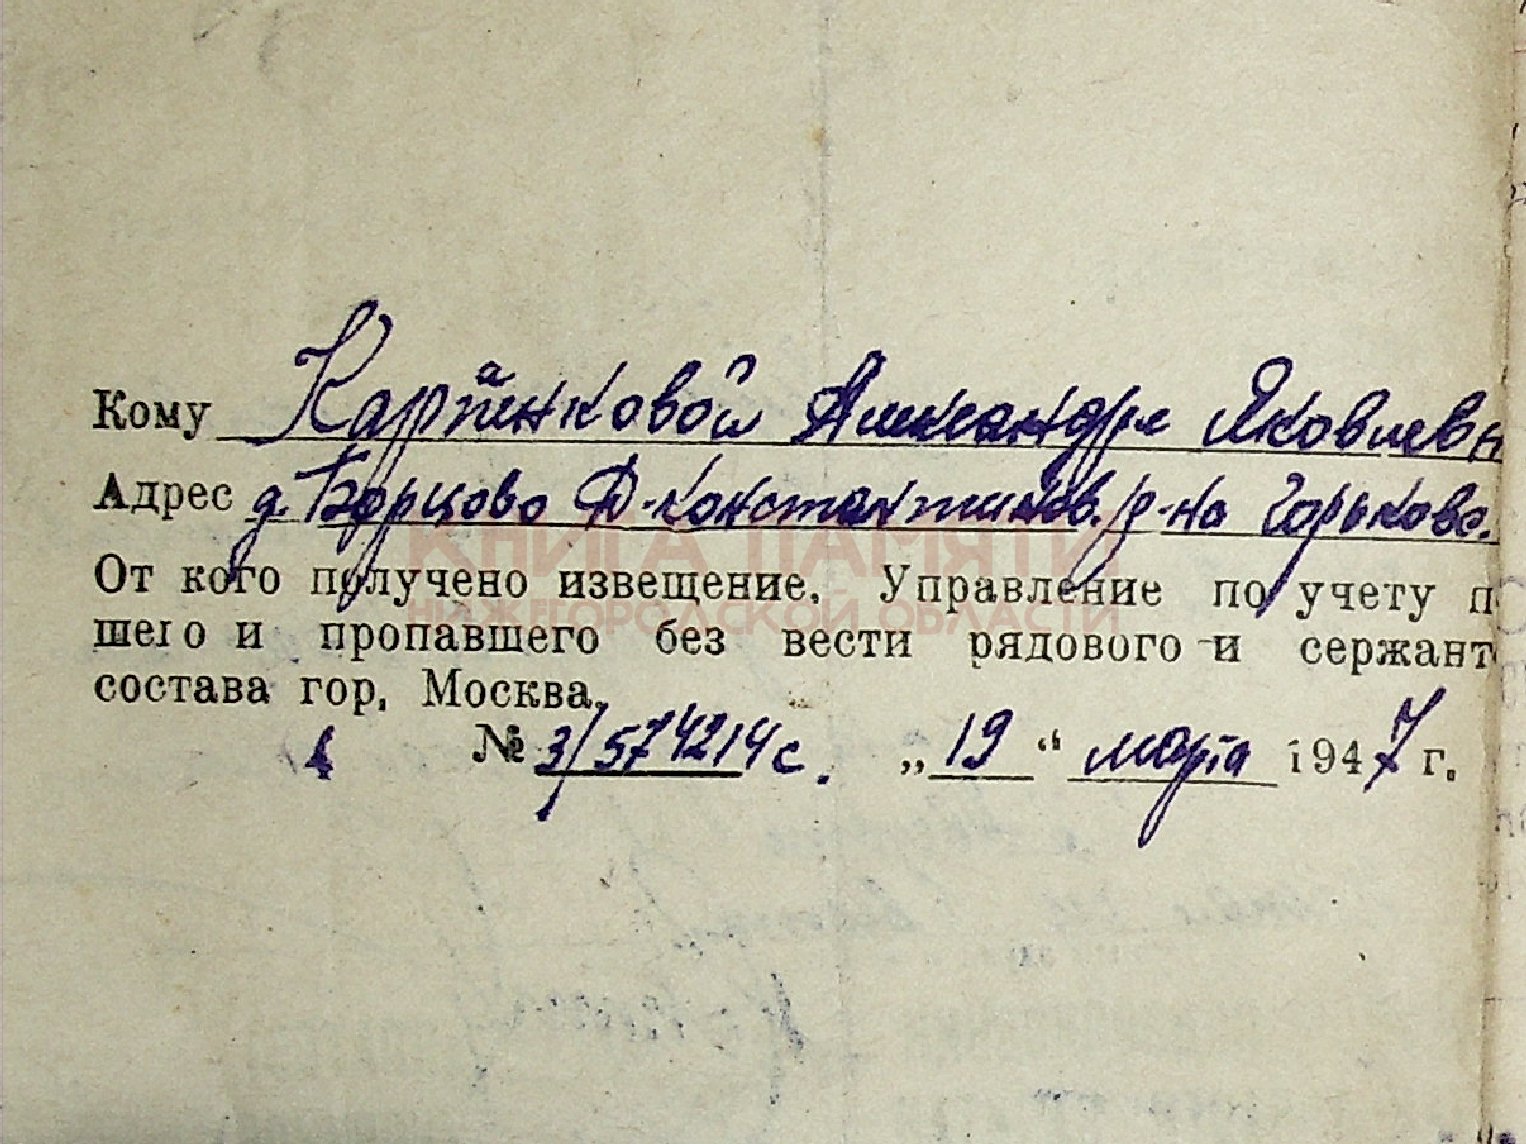 Кому Карпенковой Александре Яковлевн
Адрес д. Борцово Д-Константинов. р-на Горьковс.
КНИГА ПАМЯТИ
От кого получено извещение. Управление по учету п
НИЖЕГОРОДСКОЙ ОБЛАСТИ
шего и пропавшего без вести рядового и сержант
состава гор. Москва.
№ 3/574214с. „19“ марта 1947 г.